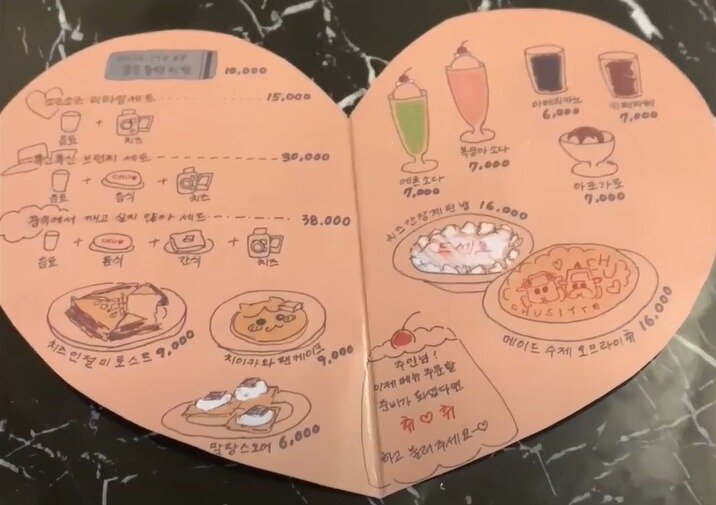 10,000
소곤소곤 피라밀세트 15,000
음료 + 치즈
폭신폭신 브런치 세트 30,000
음료 + 음식 + 치즈
꿈속에서 깨고 싶지 않아 세트 38,000
음료 + 음식 + 간식 + 치즈
치즈 인절미 토스트 9,000
치이카와 팬케이크 9,000
말랑스모어 6,000
메론소다
7,000
복숭아 소다
7,000
아메리카노
6,000
카페라떼
7,000
아포가토
7,000
16,000
CHU
CHUSITTE
메이드 수제 오므라이츄 16,000
주인님!
이제 메뉴 주문할
준비가 되셨다면
츄♡츄
하고 불러주세요~♡